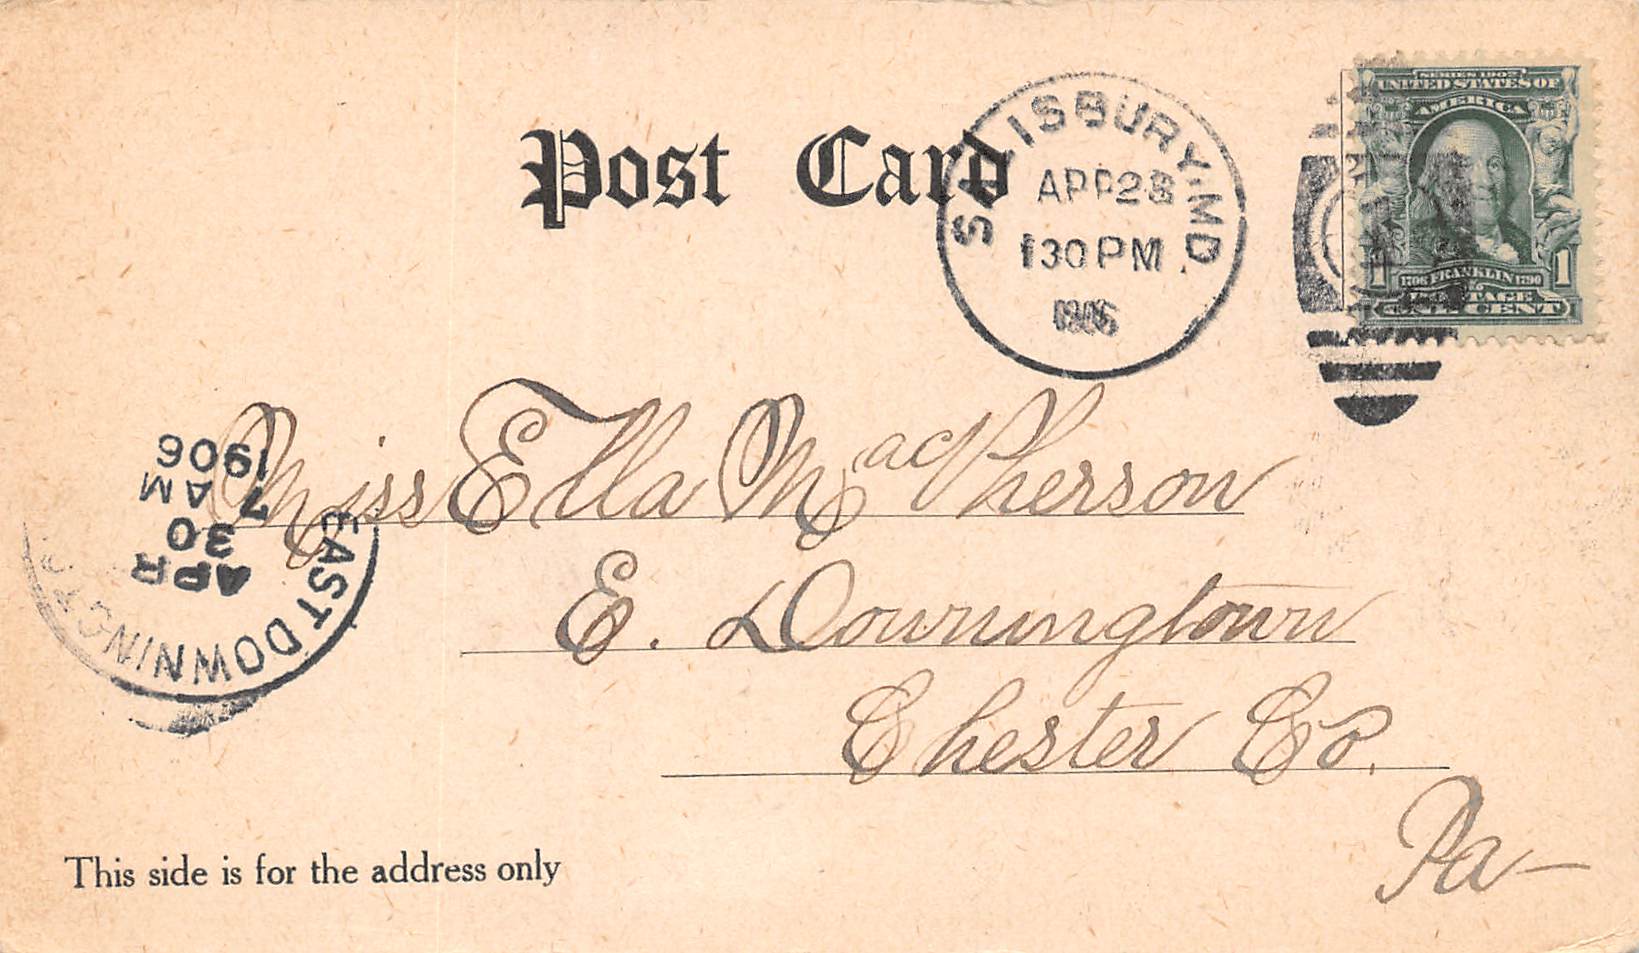 Post Card
SALISBURY, MD.
APR 28
1 30 PM
1906
SERIES 1902
UNITED STATES OF
AMERICA
1706 FRANKLIN 1790
POSTAGE
1 1
ONE CENT
Miss Ella MacPherson
E. Downingtown
Chester Co.
Pa—
EAST DOWNINGT
APR
30
7 AM
1906
This side is for the address only